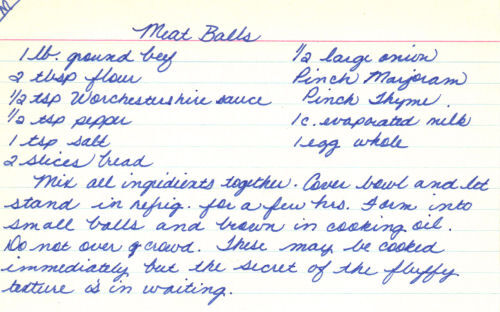 Meat Balls
1 lb. ground beef
2 tbsp flour
1/2 tsp Worchestershire sauce
1/2 tsp pepper
1 tsp salt
2 slices bread
1/2 large onion
Pinch Marjoram
Pinch Thyme.
1 c. evaporated milk
1 egg whole
Mix all ingidients together. Cover bowl and let
stand in refrig. for a few hrs. Form into
small balls and brown in cooking oil.
Do not over crowd. These may be cooked
immediately but the secret of the fluffy
texture is in waiting.